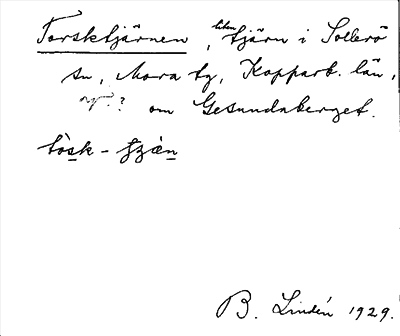 Torsktjärnen, liten tjärn i Sollerö
sn, Mora tg, Kopparb. län,
om Gesundaberget.
tòsk-tjæ̀n
B. Lindén 1929.